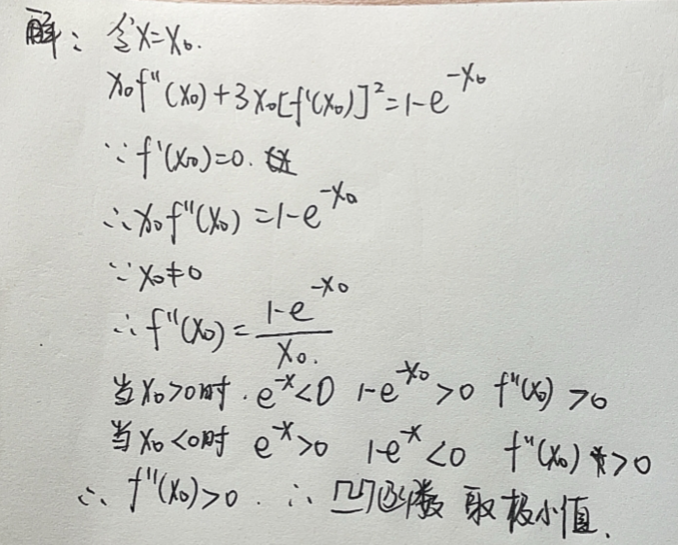 解：令x=x₀.
x₀f''(x₀)+3x₀[f'(x₀)]²=1-e^{-x₀}
∵f'(x₀)=0.
∴x₀f''(x₀)=1-e^{-x₀}
∵x₀≠0
∴f''(x₀)=\frac{1-e^{-x₀}}{x₀.}
当x₀>0时.e^{-x}<0 1-e^{-x₀}>0 f''(x₀)>0
当x₀<0时 e^{-x}>0 1-e^{-x}<0 f''(x₀)>0
∴f''(x₀)>0.∴凹函数取极小值.